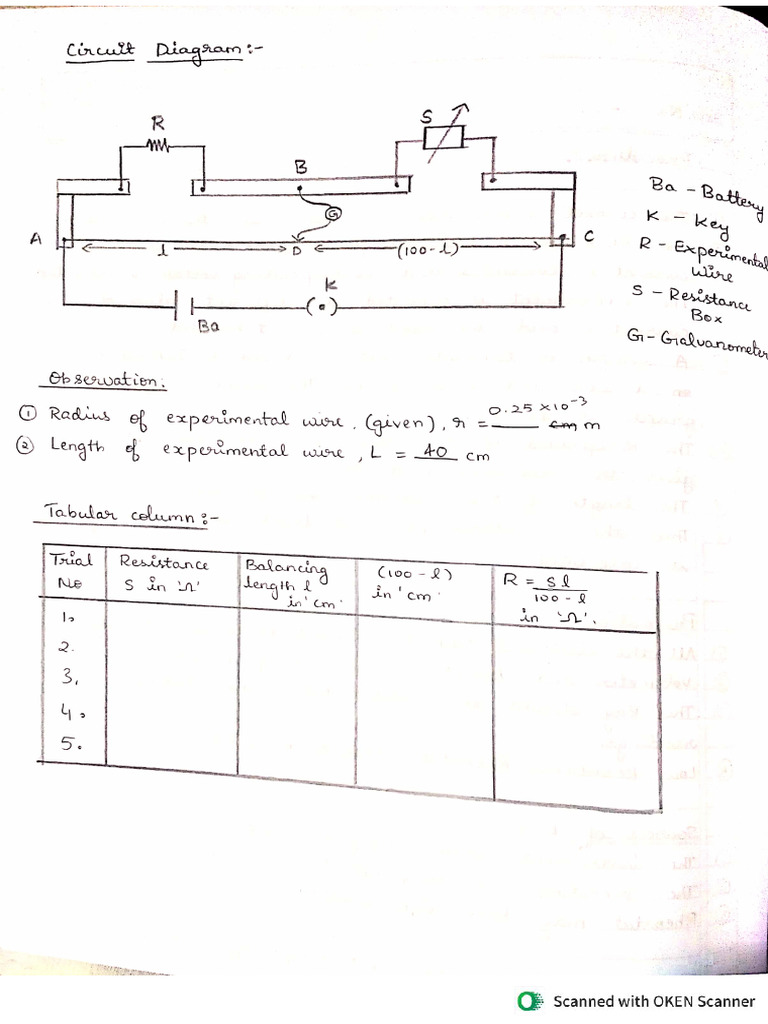 Circuit Diagram:-
R
S
B
G
A
l
D
(100-l)
C
K
Ba
Ba - Battery
K - Key
R - Experimental
wire
S - Resistance
Box
G - Galvanometer
Observation:
① Radius of experimental wire, (given), r = 0.25 × 10⁻³ cm m
② Length of experimental wire, L = 40 cm
Tabular column:-
Trial No | Resistance S in 'Ω' | Balancing length l in 'cm' | (100 - l) in 'cm' | R = Sl / 100 - l in 'Ω'.
1.
2.
3.
4.
5.
Scanned with OKEN Scanner